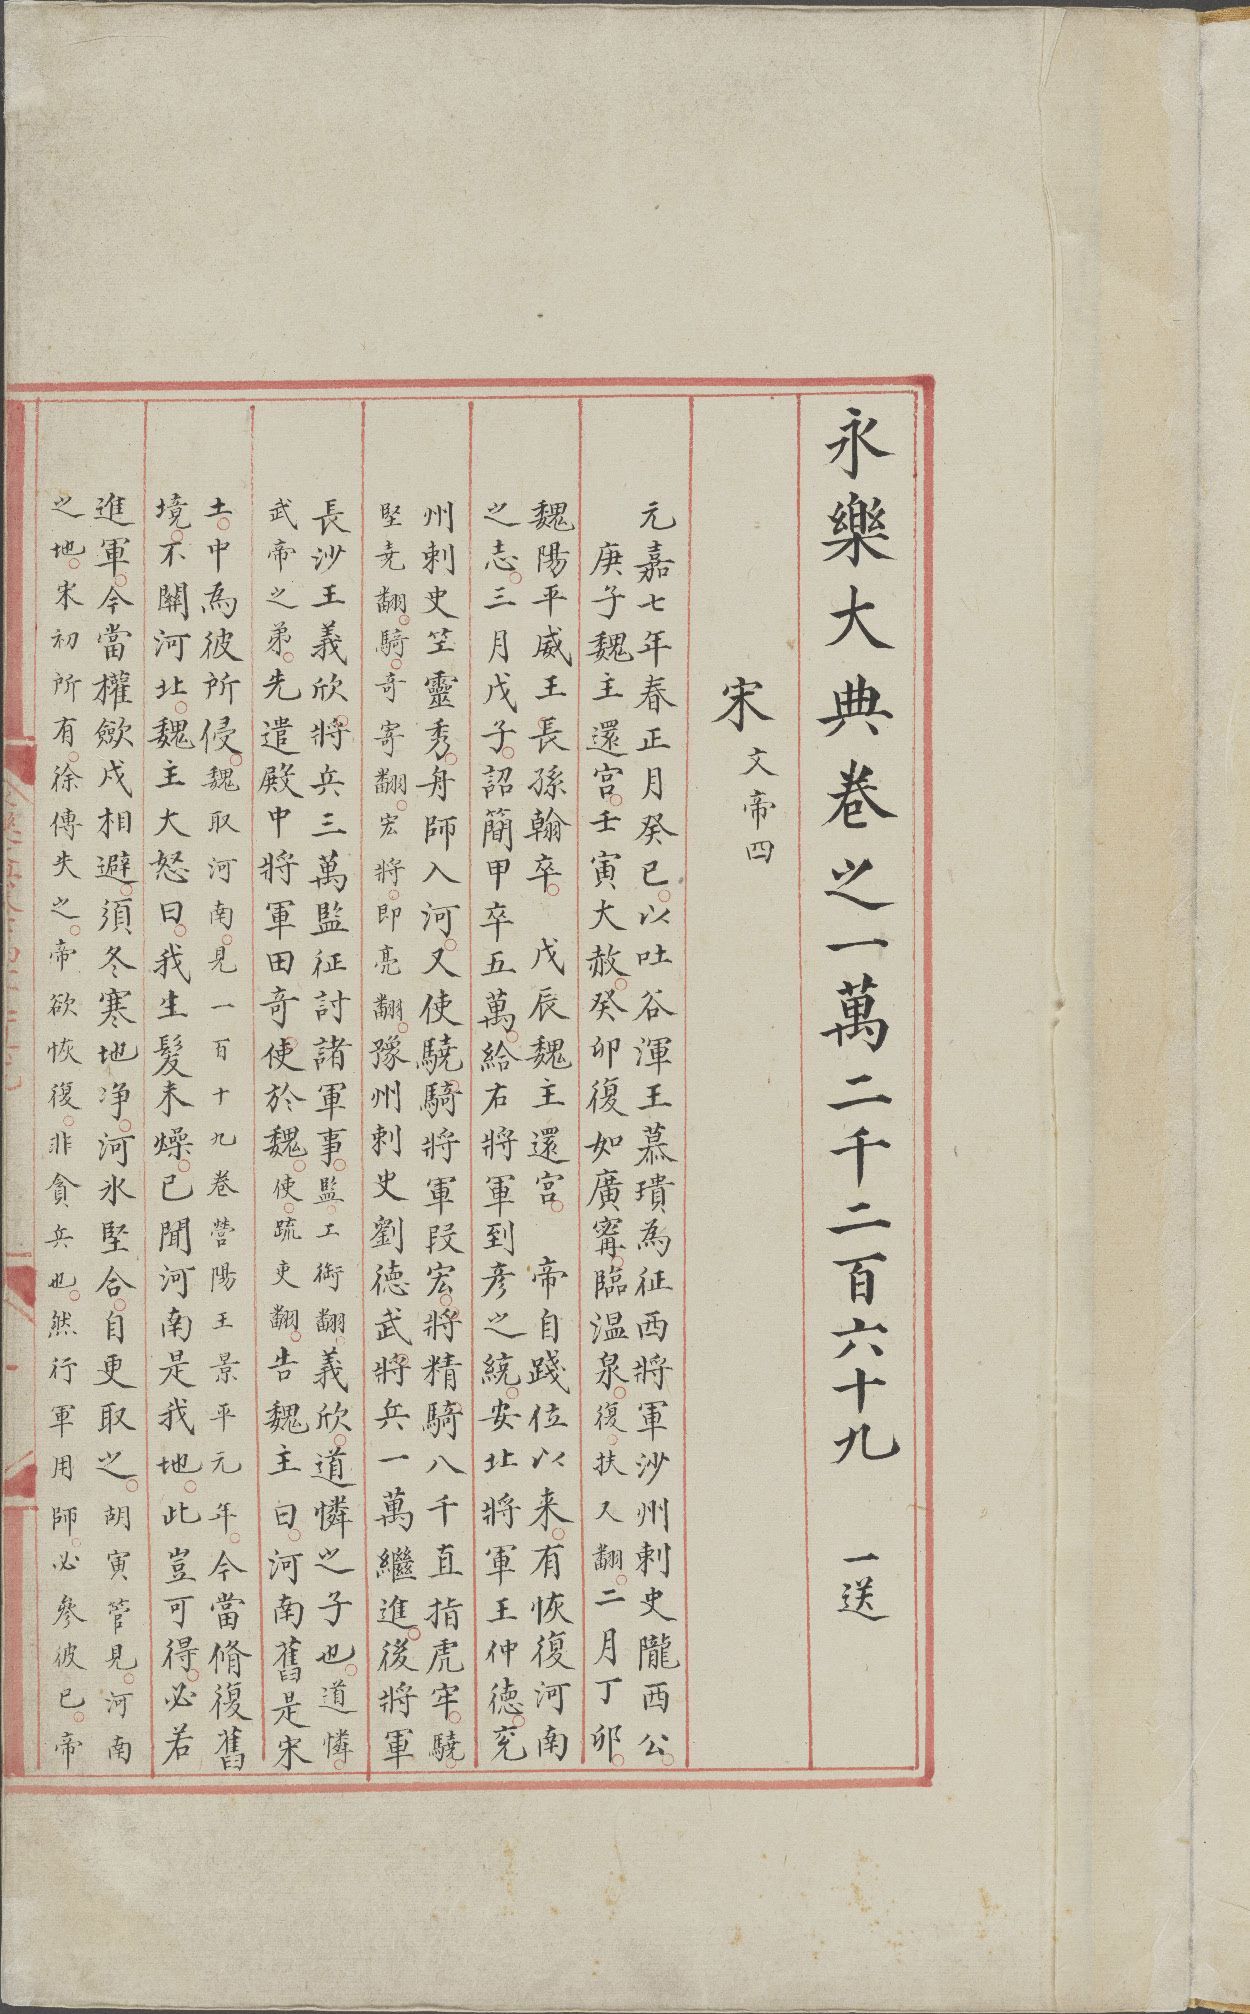 永樂大典卷之一萬二千二百六十九 一送
宋 文帝四
元嘉七年春正月癸巳以吐谷渾王慕璝為征西將軍沙州刺史隴西公
庚子魏主還宮壬寅大赦癸卯復如廣甯臨温泉復扶又翻二月丁卯
魏陽平威王長孫翰卒 戊辰魏主還宮 帝自踐位以来有恢復河南
之志三月戊子詔簡甲卒五萬給右將軍到彦之統安北將軍王仲德兖
州刺史竺靈秀舟師入河又使驍騎將軍段宏將精騎八千直指虎牢驍
堅尭翻騎奇寄翻宏將即亮翻豫州刺史劉德武將兵一萬繼進後將軍
長沙王義欣將兵三萬監征討諸軍事監工銜翻義欣道憐之子也道憐
武帝之弟先遣殿中將軍田奇使於魏使疏吏翻告魏主曰河南舊是宋
土中為彼所侵魏取河南見一百十九卷營陽王景平元年今當脩復舊
境不關河北魏主大怒曰我生髮未燥已聞河南是我地此豈可得必若
進軍今當權歛戍相避須冬寒地净河氷堅合自更取之胡寅管見河南
之地宋初所有徐傅失之帝欲恢復非貪兵也然行軍用師必參彼已帝